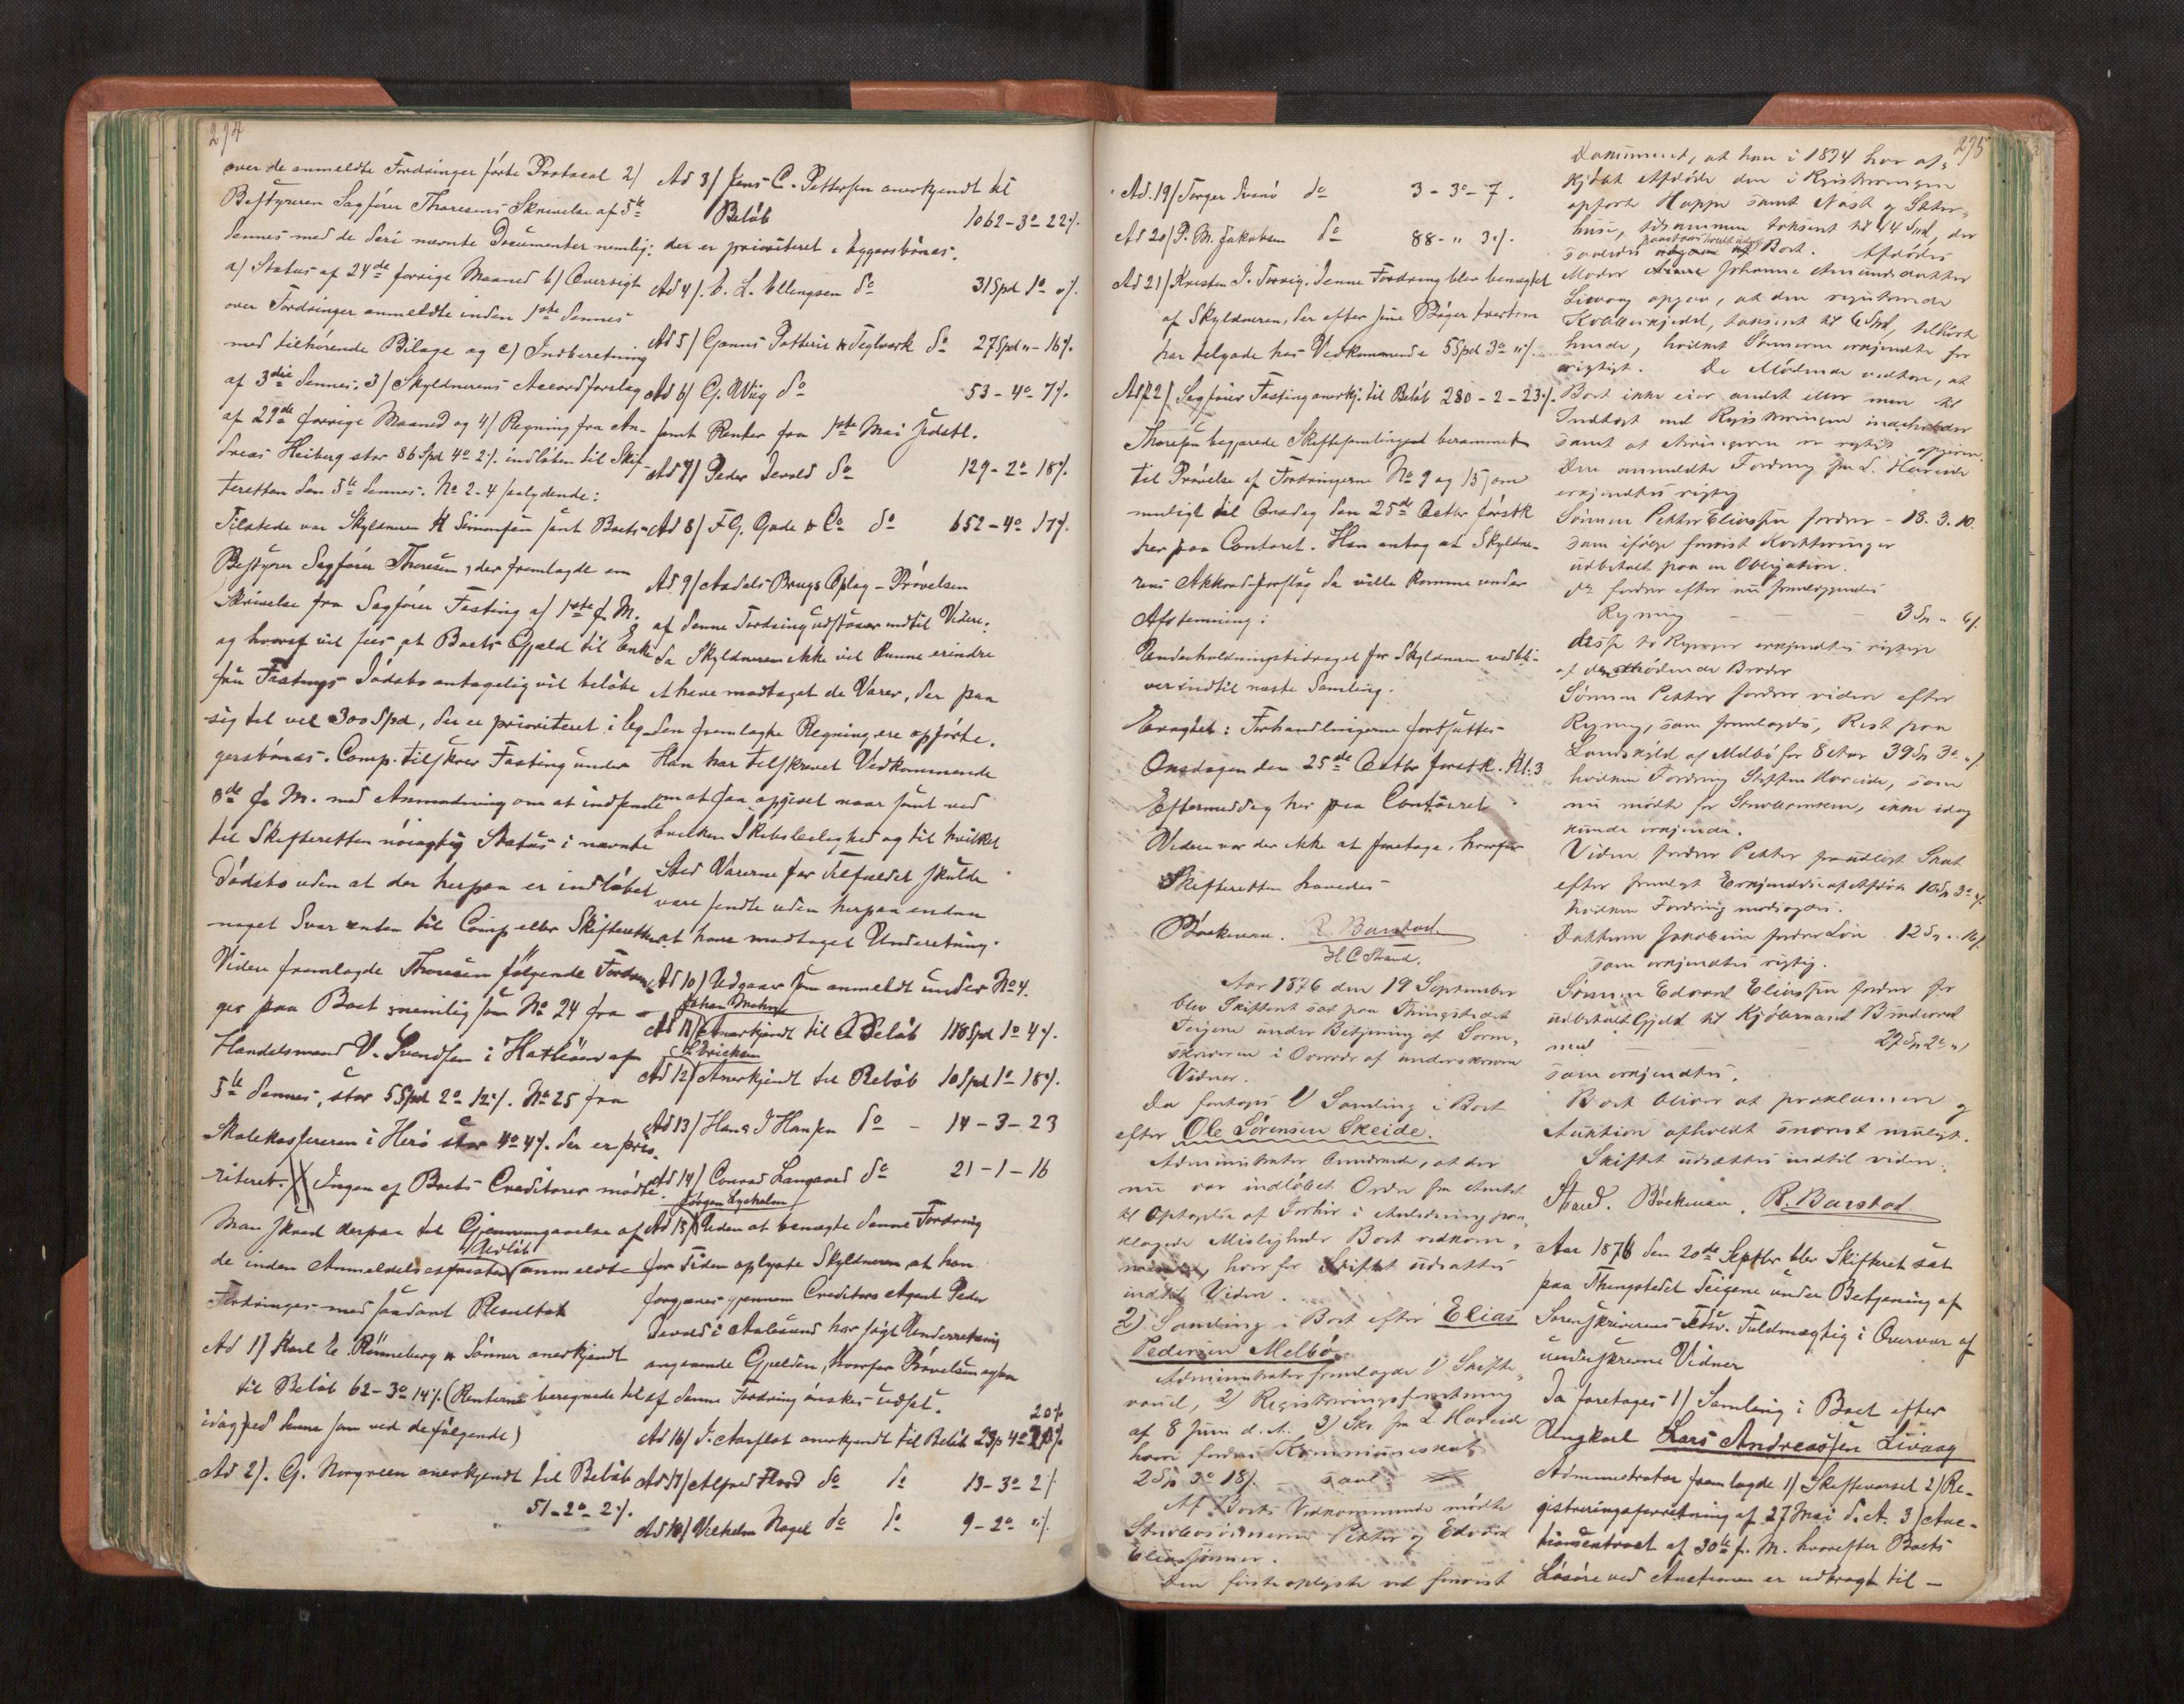 274
over de anmeldte Fordringer førte Protocol 2/
Bestyreren Sagfører Thoresens Skrivelse af 5te
dennes med de deri nævnte Documenter nemlig:
a/ Status af 24de forrige Maaned b/ Oversigt
over Fordringer anmeldte inden 1ste dennes
med tilhørende Bilage og c/ Indberetning
af 3die dennes. 3/ Skyldnerens Accordforslag
af 29de forrige Maaned og 4/ Regning fra An-
dreas Heiberg stor 86 Spd 4o 2/. indløben til Skif-
teretten den 5te dennes. No 2-4 saalydende:
Tilstede var Skyldneren H Simonsen samt Boets
Bestyrer Sagfører Thoresen, der fremlagde en
Skrivelse fra Sagfører Fasting af 1ste d. M.
og hvoraf vil sees, at Boets Gjæld til Enke
fru Fastings Dødsbo antagelig vil beløbe
sig til vel 300 Spd, der er prioriteret i Byg-
gersbonæs. Comp. tilskrev Fasting under
8de d. M. med Anmodning om at indsende
til Skifteretten nøiagtig Status i nævnte
Dødsbo uden at der herpaa er indløbet
noget Svar enten til Comp eller Skifteretten.
Videre fremlagde Thoresen følgende Fordrin-
ger paa Boet nemlig som No 24 fra
Handelsmand V. Svendsen i Hatløen af
5te dennes, stor 5 Spd 2o 12/. No 25 fra
Skolekassereren i Herø stor 4o 4/. der er prio-
riteret. Ingen af Boets Creditorer mødte.
Man skred derpaa til Gjennemgaaelse af
de inden Anmeldelsesfristens Udløb anmeldte
Fordringer med saadant Resultat
Ad 1/ Karl E. Rønneberg & Sønner anerkjendt
til Beløb 62-3o 14/. (Renterne beregnede til
idag ved denne som ved de følgende)
Ad 2/. G. Norgreen anerkjendt til Beløb
51-2o 2/.
Ad 3/ Jens C. Pettersen anerkjendt til
Beløb 1062-3o 22/.
der er prioriteret i Byggersbonæs.
Ad 4/. C. L. Ellingsen do 31 Spd 1o "/.
Ad 5/ Ganns Potteri & Teglværk do 27 Spd "- 16/.
Ad 6/ G. Wiig do 53-4o 7/.
samt Renter fra 1ste Mai sidstl.
Ad 7/ Peder Devold do 129-2o 18/.
Ad 8/ F G. Gade & Co do 652-4o 17/.
Ad 9/ Aadals Brugs Oplag - Prøvelsen
af denne Fordring udstaaer indtil Videre,
da Skyldneren ikke vil kunne erindre
at have modtaget de Varer, der paa
den fremlagte Regning ere opførte.
Han har tilskrevet Vedkommende
om at faa opgivet naar samt ved
hvilken Skibsleilighed og til hvilket
Sted Varerne for Tilfældet skulde
være sendte uden herpaa endnu
at have modtaget Underretning.
Ad 10/ Udgaar som anmeldt under No 4.
Johan Mohn
Ad 11/ Anerkjendt til Beløb 118 Spd 1o 4/.
Ad 12/ Anerkjendt til Beløb 10 Spd 1o 18/.
Ad 13/ Hans J Hansen do - 14-3-23
Ad 14/ Conrad Langaard do 21-1-16
Jørgen Lysholm
Ad 15/ Uden at benægte denne Fordring
for Tiden oplyste Skyldneren at han
forgjæves gjennem Creditors Agent Peder
Devold i Aalesund har søgt Underretning
angaaende Gjælden, hvorfor Prøvelsen ogsaa
af denne Fordring ønskes udsat.
20/.
Ad 16/ J. Aarflot anerkjendt til Beløb 29 Sp 4o
Ad 17/ Alfred Flood do do 13-3o 2/
Ad 18/ Vilhelm Nagel do do 9-2o "/.
275
Ad. 19/ Torger do 3-3o-7.
Ad 20/ P. M. Jakobsen do 88-" 3/.
Ad 21/ Kristen J. Torvig. Denne Fordring blev benægtet
af Skyldneren, der efter sine Bøger tvertom
har tilgode hos Vedkommende 5 Spd 3o "/.
Ad 22/ Sagfører Fasting anerkj. til Beløb 280-2-23/.
Thoresen begjærede Skiftesamlingen berammet
til Prøvelse af Fordringerne No 9 og 15, om
muligt til Onsdag den 25de Octbr førstk
her paa Contoret. Han antog at Skyldne-
rens Akkordforslag da vilde komme under
Afstemning.
Underholdningsbidraget for Skyldneren vedbli-
ver indtil næste Samling.
Eragtet: Forhandlingerne fortsættes
Onsdagen den 25de Octbr førstk. Kl. 3
Eftermiddag her paa Contoiret
Videre var der ikke at foretage, hvorfor
Skifteretten hævedes
Bøckman. R. Barstad
H. C Strand.
Aar 1876 den 19 September
blev Skifteret sat paa Thingstedet
Teigene under Betjening af Soren-
skriveren i Overvær af underskrevne
Vidner.
Da foretoges 1/ Samling i Boet
efter Ole Sørensen Skeide.
Administrator bemærkede, at der
nu var indløbet Ordre fra Amtet
til Optagelse af Forhør i Anledning paa-
klagede Misligheder Boet vedkom-
mende, hvorfor Skiftet udsattes
indtil Videre.
2) Samling i Boet efter Elias
Pedersen Melbø.
Administrator fremlagde 1) Skifte-
varsel, 2) Registreringsforretning
af 8 Juni d. A. 3) Skr. fra L Hareide
hvori fordres Kommuneskat
2 Sp 3o 18/. saal.
Af Boets Vedkommende mødte
Stervbosønnerne Petter og Edvard
Eliassønner.
Den første oplyste ved forevist
Dokument, at han i 1874 har af-
kjøbt Afdøde den i Registreringen
opførte Hoppe samt Nøst og Sætre-
huse, tilsammen taxeret til 44 Spd, der
saaledes Boet. Afdødes
Moder Johanne Amundsdatter
Livaag opgav, at den registrerede
Kobberkjedel, taxeret til 6 Spd, tilhørte
hende, hvilket Sønnerne erkjendte for
rigtigt. De Mødende vedtog, at
Boet ikke eier andet eller mere til
Indtægt end Registreringen indeholder
samt at Arvingerne er rigtigt opgivne.
Den anmeldte Fordring fra L. Hareide
erkjendtes rigtig
Sønnen Petter Eliassen fordrer - 18. 3. 10.
som ifølge forevist Kvitteringer
udbetalt paa en Obligation.
do fordrer efter nu fremliggende
Regning - - - 3 Sp " 6/.
disse to Regninger erkjendtes rigtige
af den mødende Broder
Sønnen Petter fordrer videre efter
Regning, som fremlagdes, Rest paa
Landskyld af Melbø for 8 Aar 39 Sp 3o "/
hvilken Fordring Steffen Hareide, som
nu mødte for Stervboenken, ikke idag
kunde erkjende.
Videre fordrer Petter for udlagt Skat
efter fremlagt Erkjendelse af Afdøde 10 Sp 3o "/.
hvilken Fordring modsagdes.
Datteren Jakobine fordrer Løn 12 Sp .. 16/.
som erkjendtes rigtig.
Sønnen Edvard Eliassen fordrer for
udbetalt Gjeld til Kjøbmand
med - - 29 Sp 2o "/
som erkjendtes.
Boet bliver at proklamere og
Auktion afholdt snarest muligt.
Skiftet udsættes indtil videre.
Strand. Bøckman. R. Barstad
Aar 1876 den 20de Septbr blev Skifteret sat
paa Thingstedet Teigene under Betjening af
Sorenskriverens Edsv. Fuldmægtig i Overvær af
underskrevne Vidner
Da foretoges 1/ Samling i Boet efter
Ungkarl Lars Andreassen Livaag
Administrator fremlagde 1) Skiftevarsel 2) Re-
gistreringsforretning af 27 Mai d. A. 3) Auc-
tionsextract af 30te f. M. hvorefter Boets
Løsøre ved Auctionen er udbragt til -